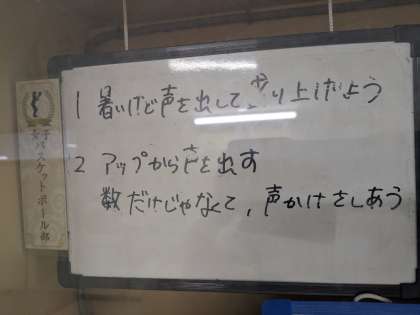 1 暑いけど声を出して盛り上げよう
2 アップから声を出す
数だけじゃなくて,声かけをしあう
女子バスケットボール部